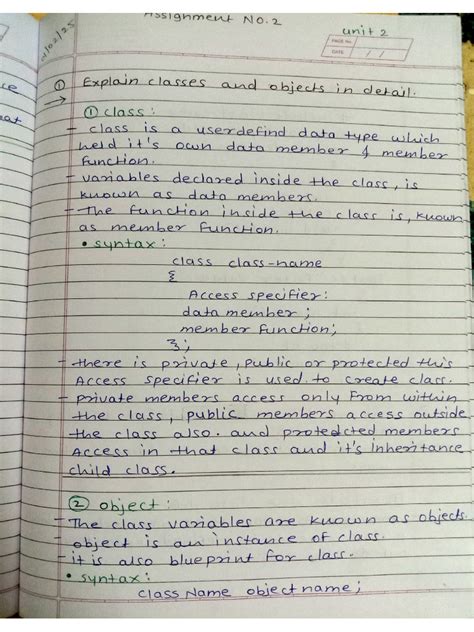 Assignment No.2
unit 2
PAGE No.
DATE / /
01/02/25
① Explain classes and objects in detail.
→
① class :
- class is a userdefind data type which
held it's own data member & member
function.
- variables declared inside the class, is
known as data members.
- The function inside the class is, known
as member function.
• syntax :
class class-name
{
Access specifier:
data member ;
member function;
};
- there is private, public or protected this
Access specifier is used to create class.
- private members access only from within
the class, public members access outside
the class also. and protedcted members
Access in that class and it's inheritance
child class.
② object :
- The class variables are known as objects.
- object is an instance of class.
- it is also blueprint for class.
• syntax :
class Name object name ;